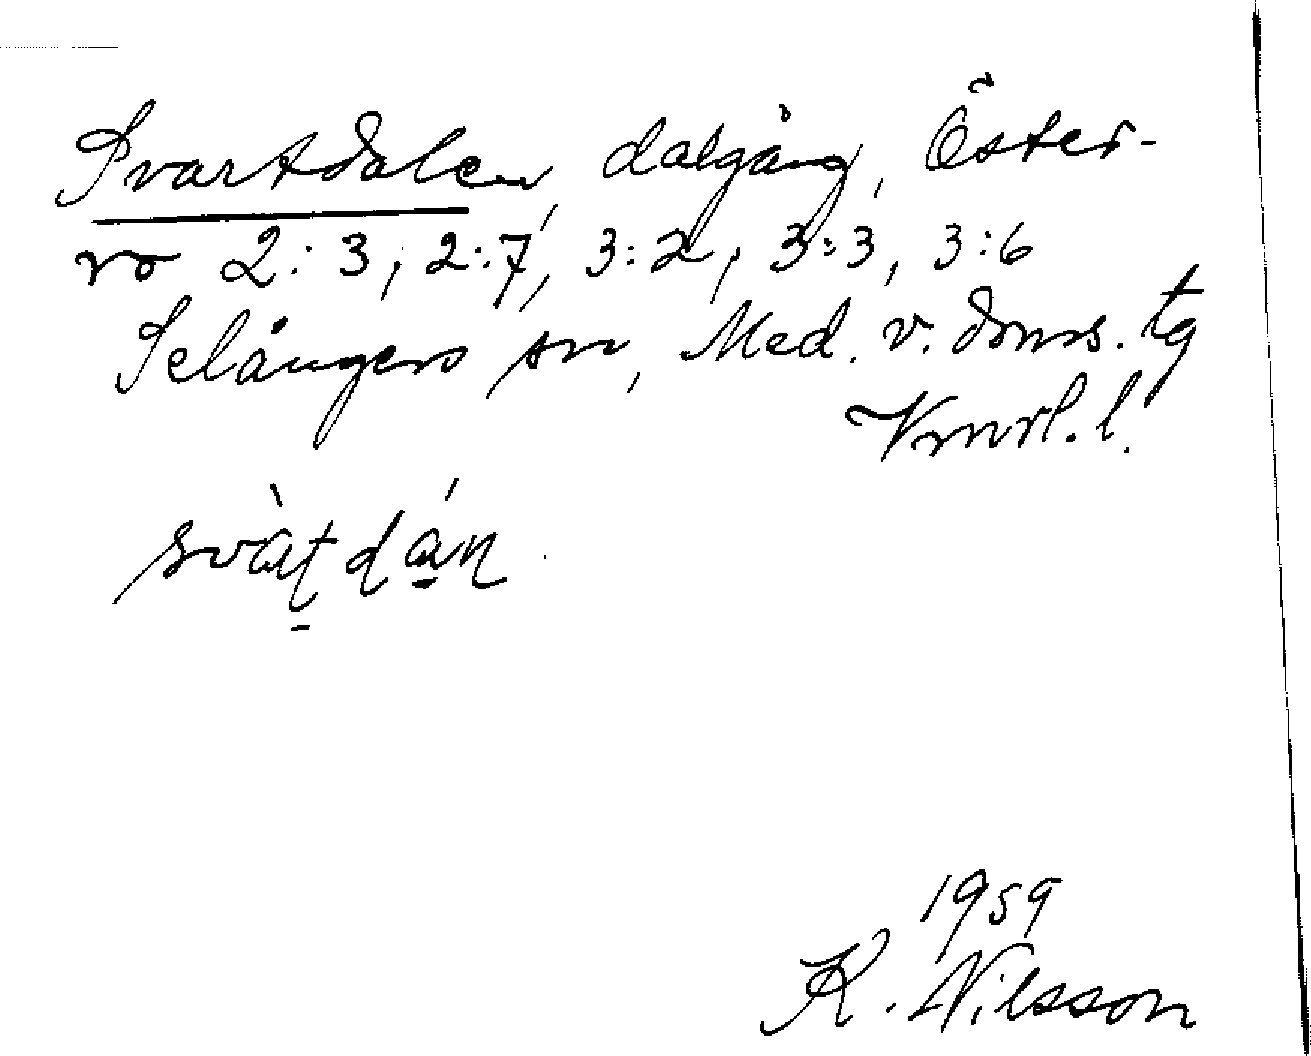 Svartdalen, dalgång, Öster-
ro 2:3, 2:7, 3:2, 3:3, 3:6
Selångers sn, Med. v. doms. tg
Vnrl. l.
1959
K. Nilsson